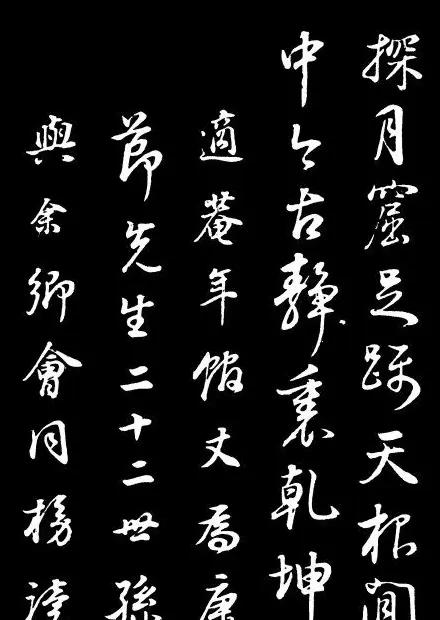 探月窟足躡天根閒
中今古靜裏乾坤
適菴年館丈為康
節先生二十二世孫
與余鄉會同榜